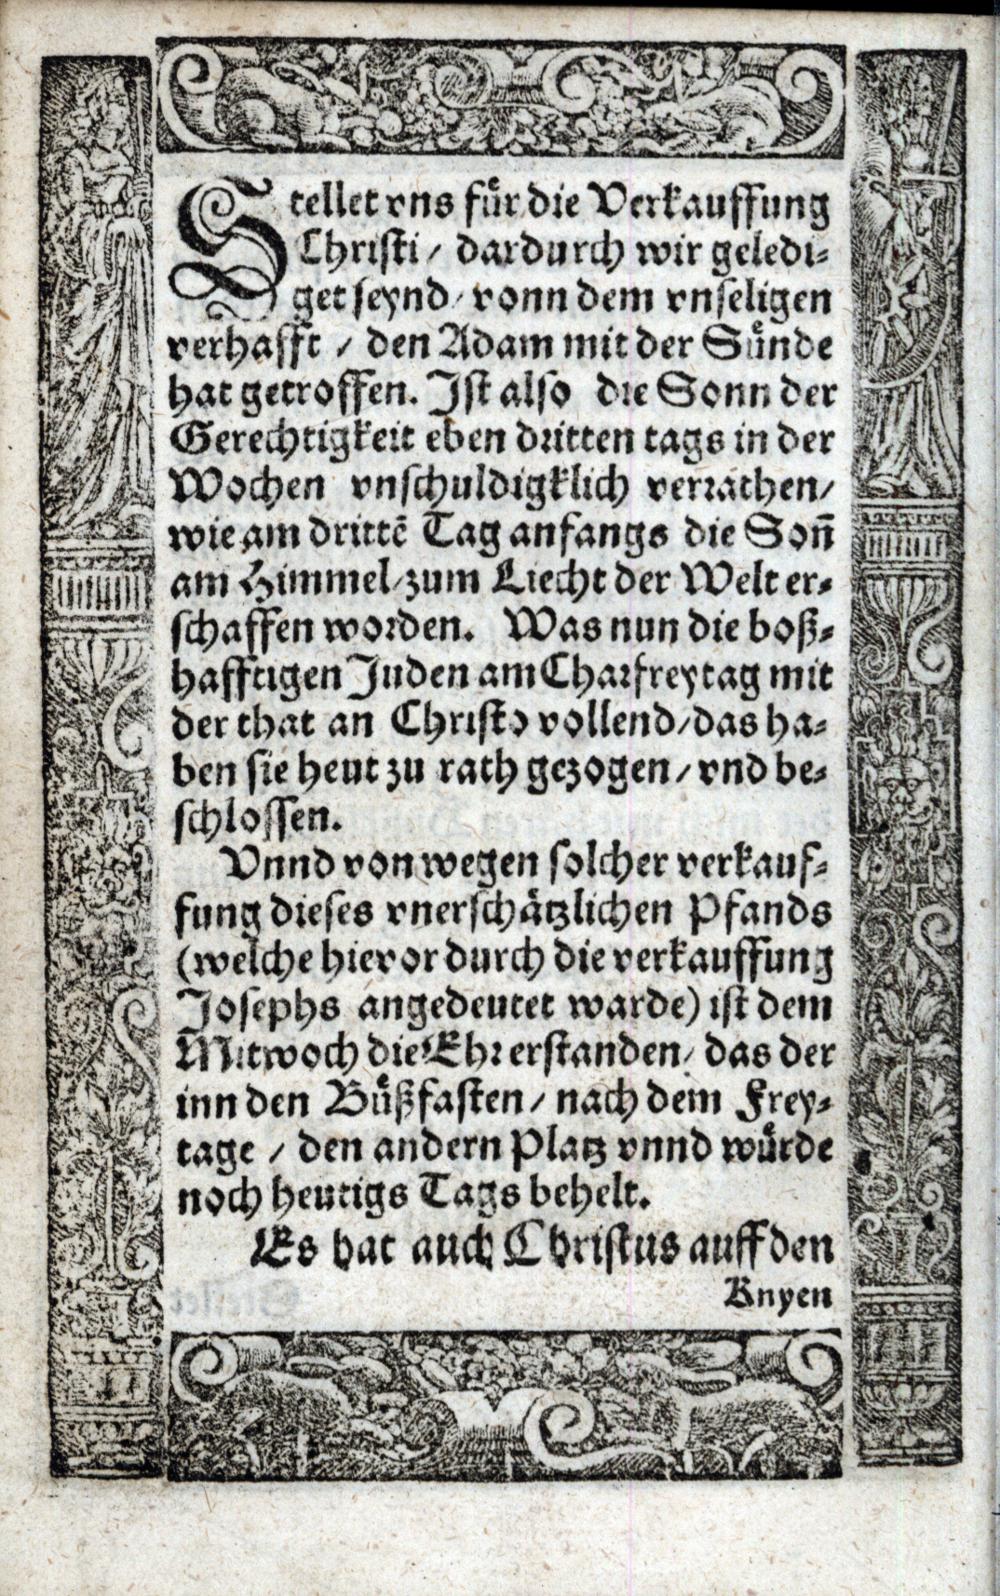 Stellet vns fůr die Verkauffung
Christi / dardurch wir geledi-
get seynd / vonn dem vnseligen
verhafft / den Adam mit der Sůnde
hat getroffen. Ist also die Sonn der
Gerechtigkeit eben dritten tags in der
Wochen vnschuldigklich verrathen/
wie am drittē Tag anfangs die Soñ
am Himmel/zum Liecht der Welt er-
schaffen worden. Was nun die boß-
hafftigen Juden am Charfreytag mit
der that an Christo vollend/das ha-
ben sie heut zu rath gezogen / vnd be-
schlossen.
Vnnd von wegen solcher verkauf-
fung dieses vnerschåtzlichen Pfands
(welche hievor durch die verkauffung
Josephs angedeutet warde) ist dem
Mitwoch die Ehr erstanden / das der
inn den Bůßfasten / nach dem Frey-
tage / den andern Platz vnnd wůrde
noch heutigs Tags behelt.
Es hat auch Christus auff den
Knyen